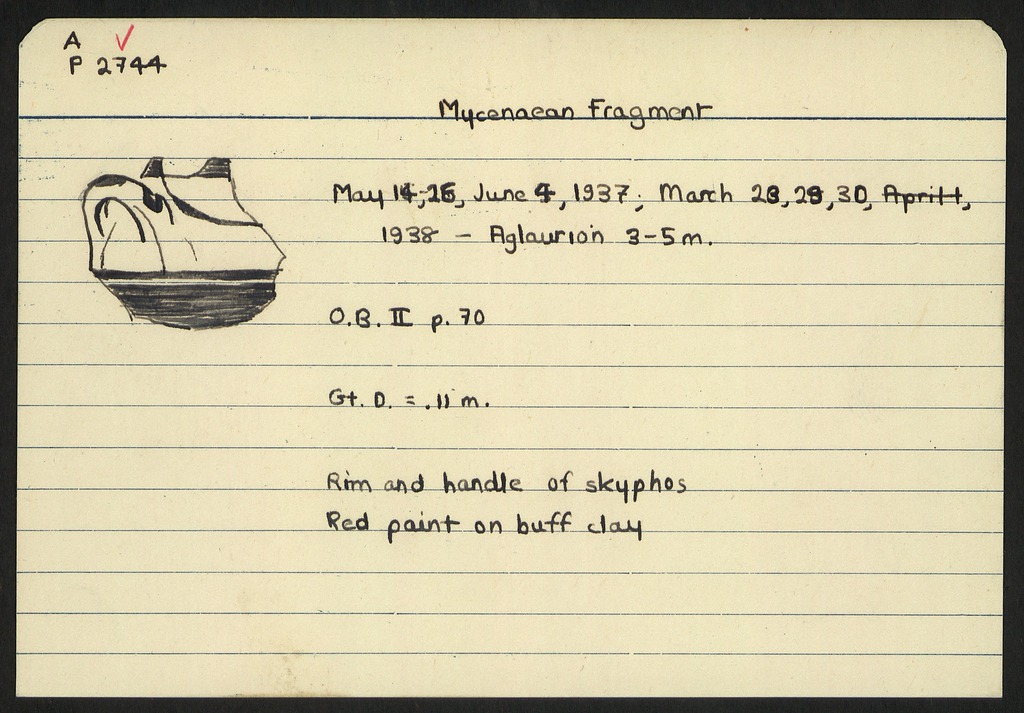 A
P 2744
Mycenaean Fragment
May 14, 26, June 4, 1937; March 28, 29, 30, April 1,
1938 – Aglaurion 3-5m.
O.B. II p. 70
Gt. D. = .11 m.
Rim and handle of skyphos
Red paint on buff clay